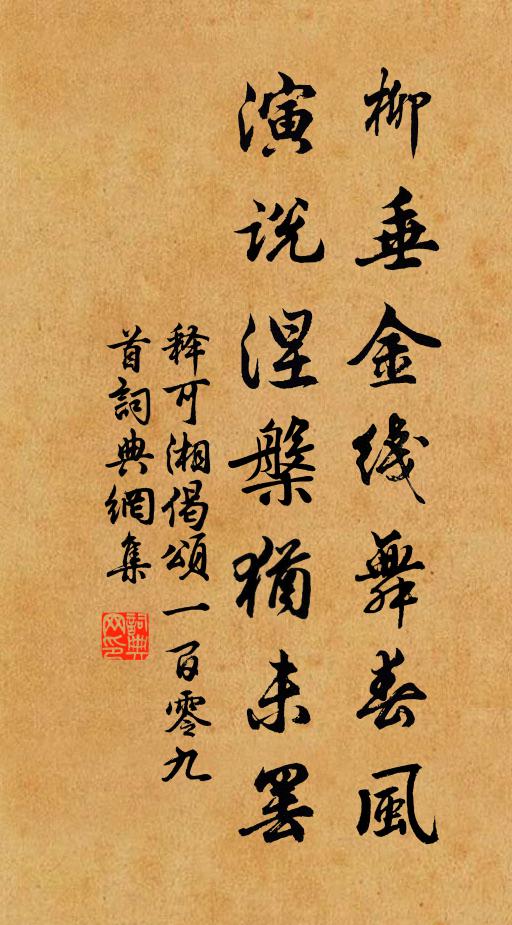 柳垂金线舞春風
演说涅槃猶未罢
释可湘偈頌一百零九
首詞典網集
詞典網印